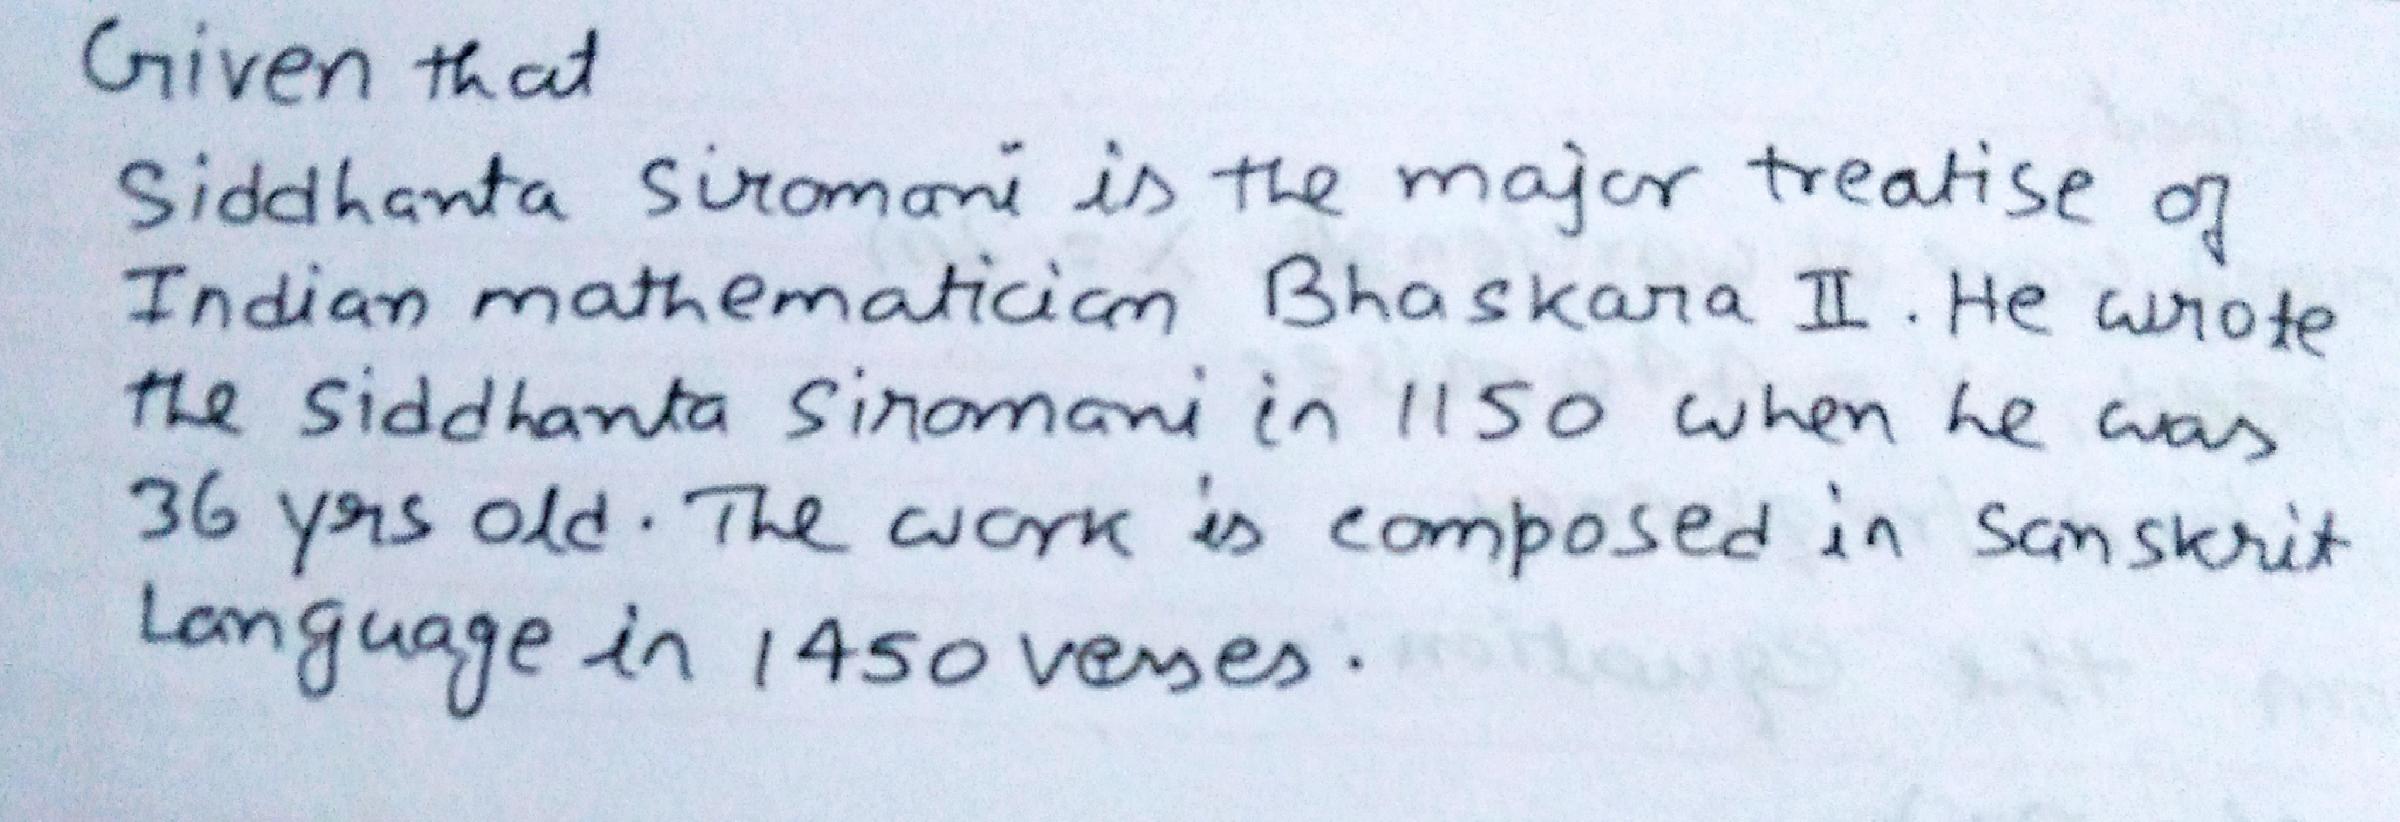 Given that
Siddhanta Siromani is the major treatise of
Indian mathematician Bhaskara II. He wrote
the Siddhanta Siromani in 1150 when he was
36 yrs old. The work is composed in Sanskrit
Language in 1450 verses.